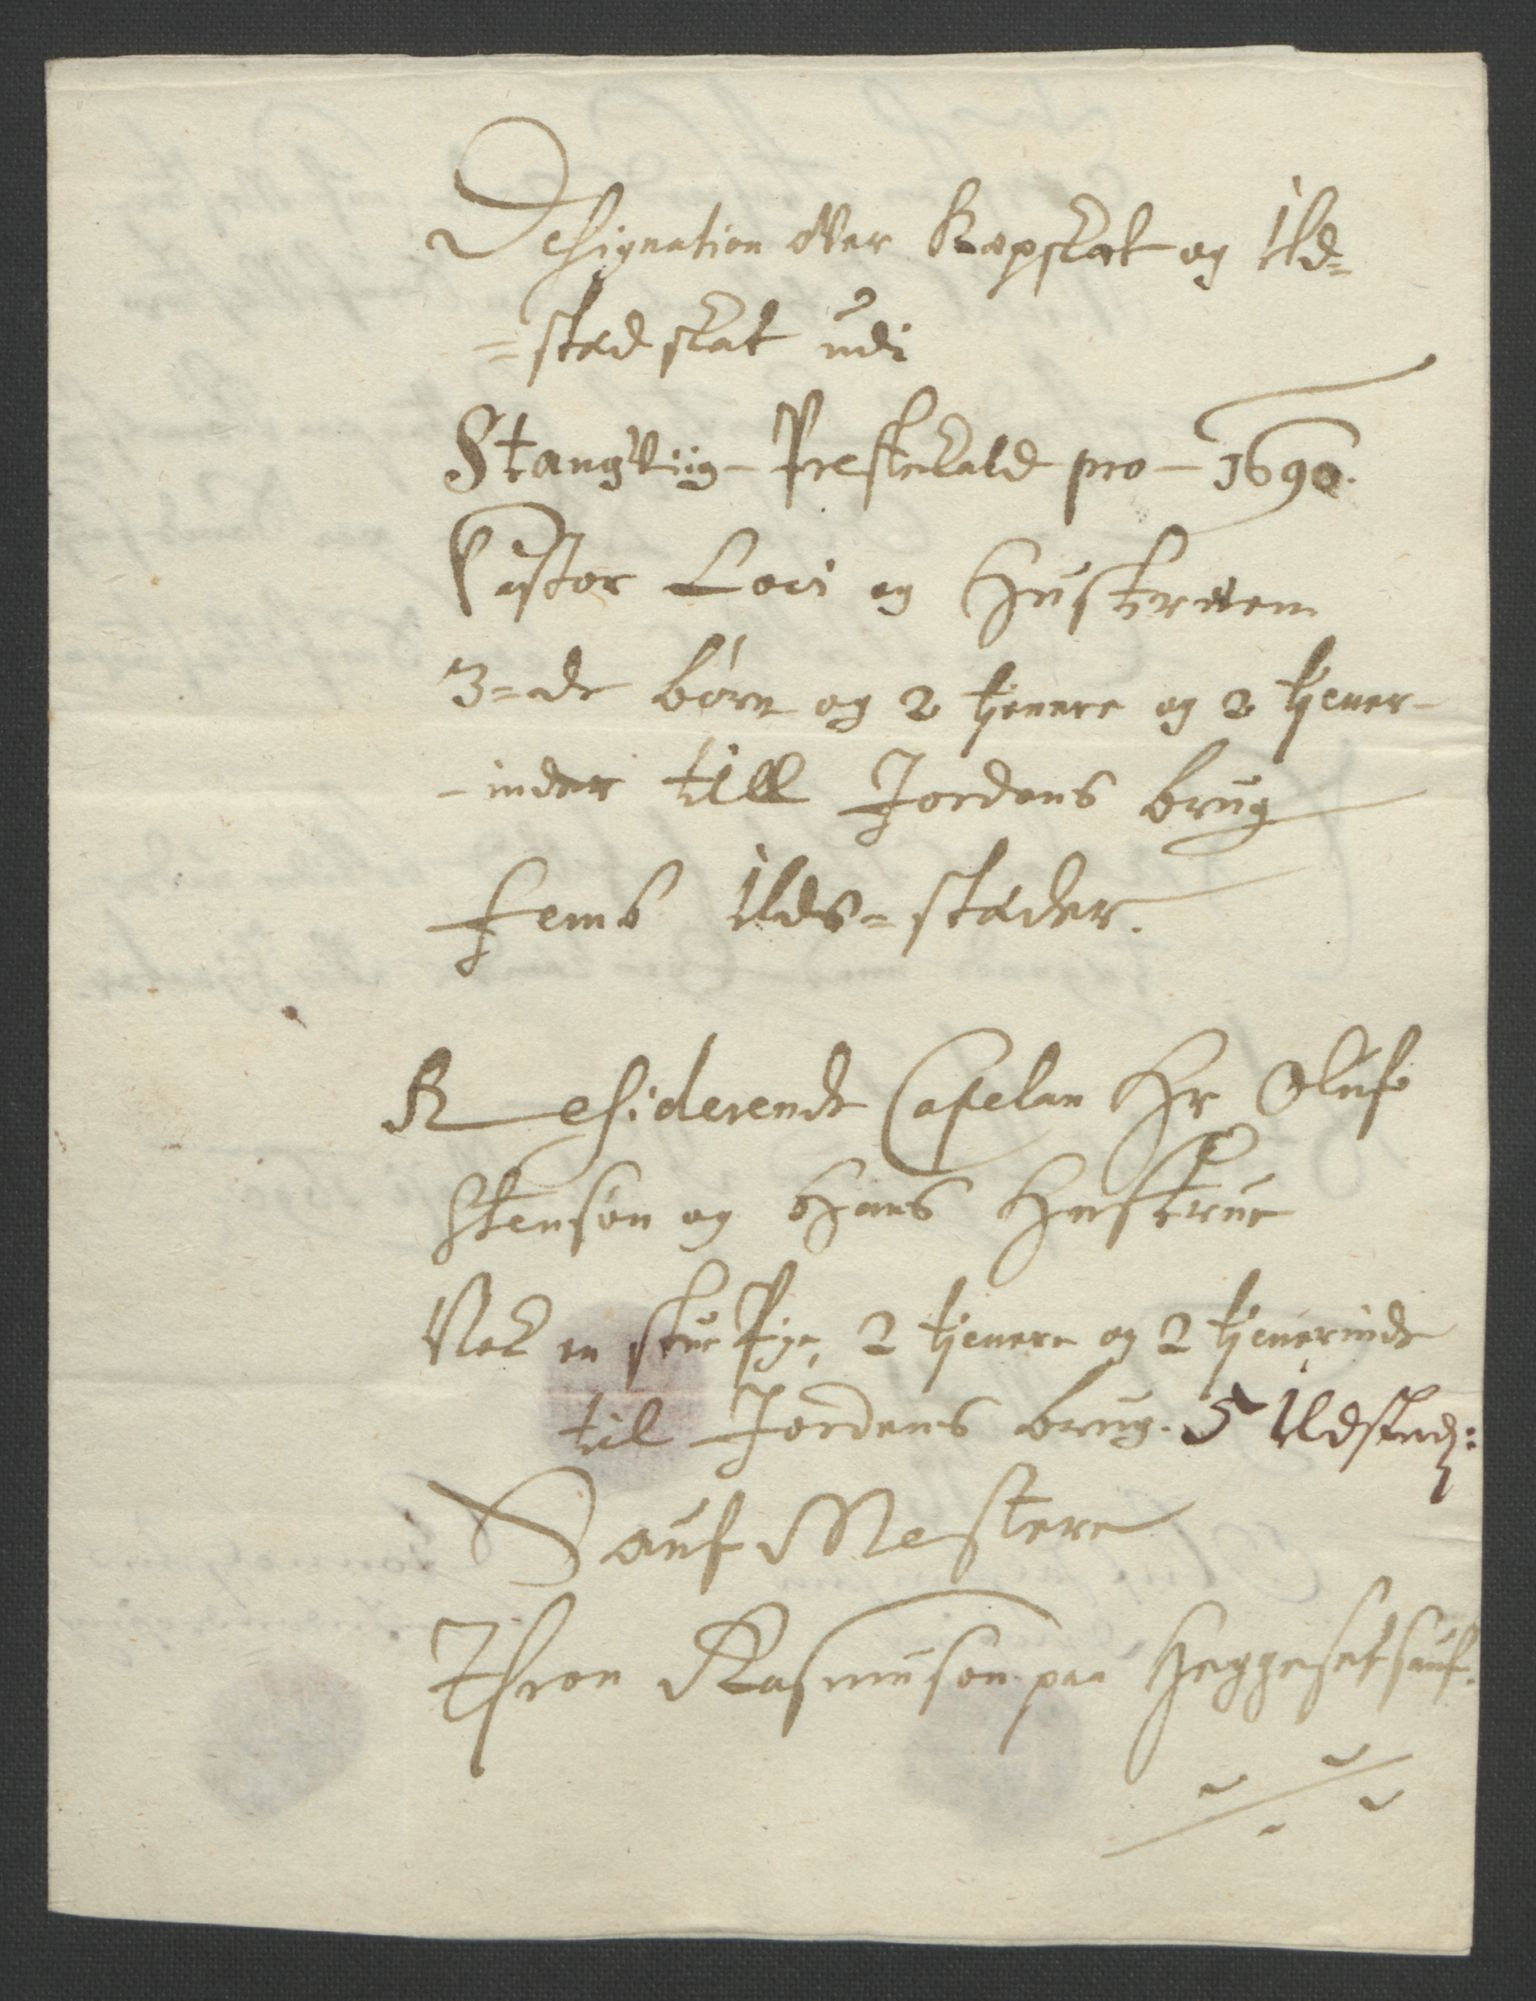 Designation ofver Kopskat og Ild=
=stad skat udi
StangViig - Prestekald pro - 1690.
Pastor Loci og Hustruen
3=de børn og 2 tjenere og 2 tjener-
-inder till Jordens brug
femb Ilds=stader.
Residerende Capelan Hr Oluf
Stensøn og Hans Hustrue
Nok en stue Pige, 2 tjenere og 2 tjenerinde
til Jordens brug. 5 Ildsted:
Sauf Mestere
Thron Rasmusøn paa Heggeset sauf.